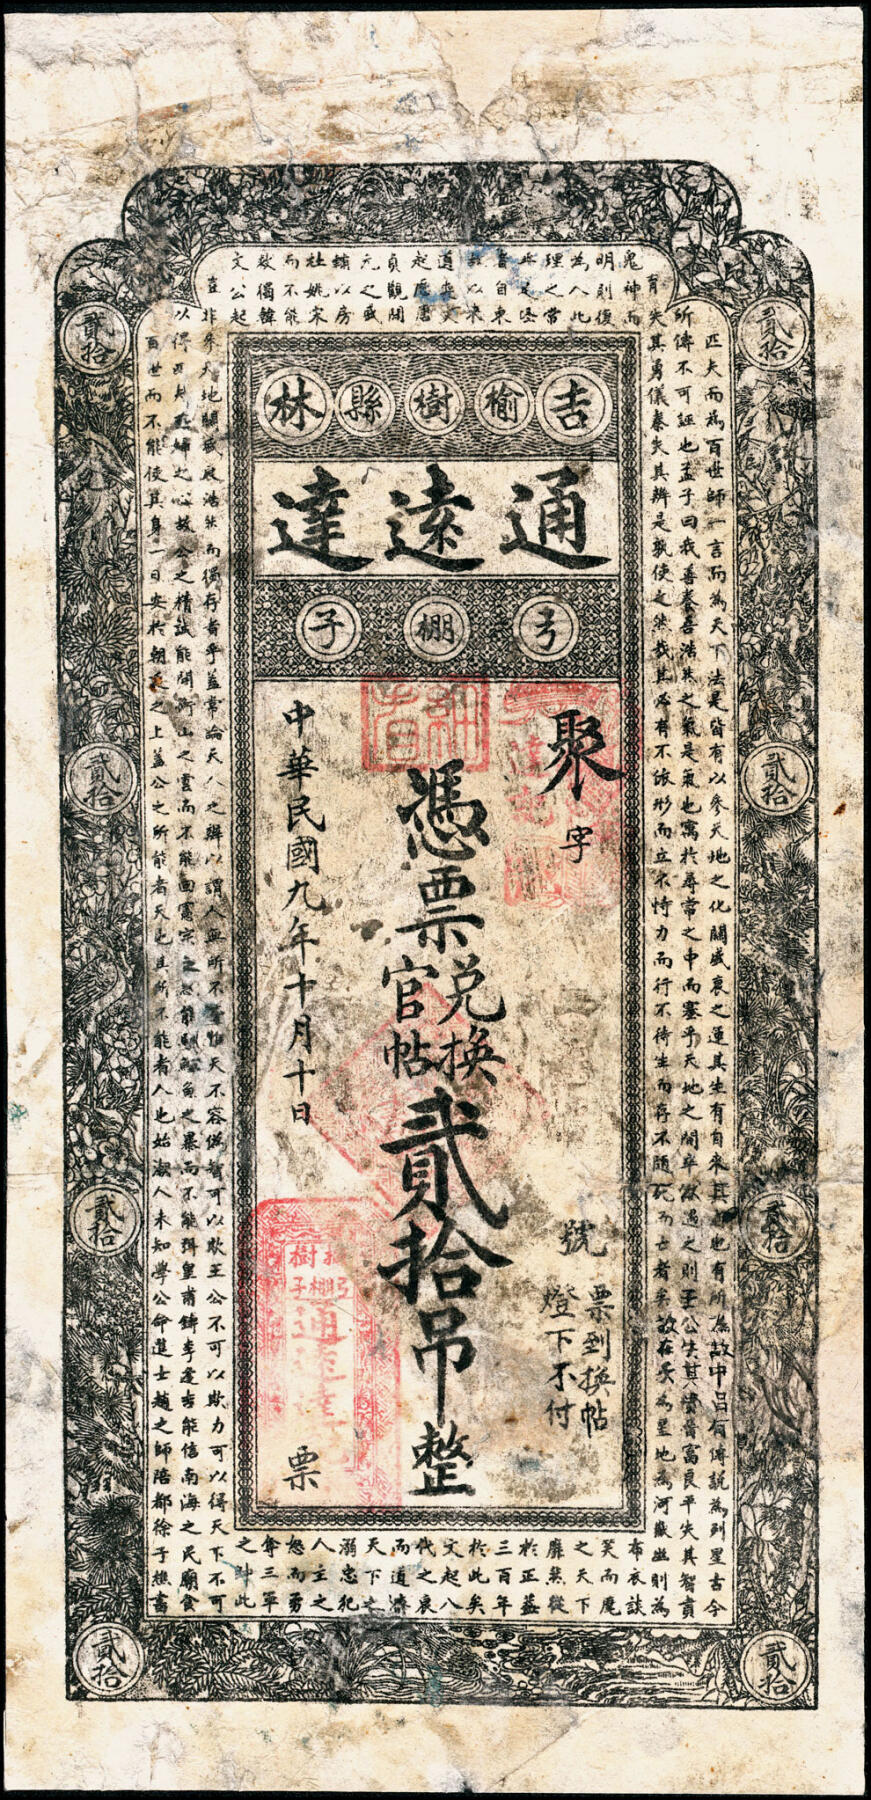 吉榆樹縣林
通遠達
弓棚子
聚字
號
票到換帖
燈下不付
憑票兌換官帖貳拾吊整
中華民國九年十月十日
票
貳拾
貳拾
貳拾
貳拾
貳拾
貳拾
貳拾
貳拾
匹夫而為百世師一言而為天下法是皆有以參天地之化關盛衰之運其生有自來其也有所為故申呂有傅說為列星古今
所傳不可誣也孟子曰我善養吾浩然之氣是氣也寓於尋常之中而塞乎天地之間卒然遇之則王公失其貴晉富良平失其智賁
育失其勇儀秦失其辨是孰使之然哉其必有不依形而立不恃力而行不待生而存不隨死而亡者矣故在天為星地為河嶽幽則為
鬼神而
明則復
為人此
理之常
足怪
者自東
以來
道喪文
起歷唐
貞觀開
元之盛
輔以房
杜姚宋
而不能
救獨韓
文公起
布衣談
笑而麾
之天下
靡然從
於正蓋
三百年
於此矣
文起八
代之衰
而道濟
天下之
溺忠犯
人主之
怒而勇
奪三軍
之帥此
豈非參天地關盛衰浩然而獨存者乎蓋常論天人之辨以謂人無所不至惟天不容偽智可以欺王公不可以欺力可以得天下不可
以得匹夫匹婦之心故公之精誠能開衡山之雲而不能回憲宗之惑能馴鱷魚之暴而不能弭皇甫鎛李逢吉能信南海之民廟食
百世而不能使其身一日安於朝廷之上蓋公之所能者天也其所不能者人也始潮人未知學公命進士趙之師陪都徐子樵書
樹
弓棚子
通遠達